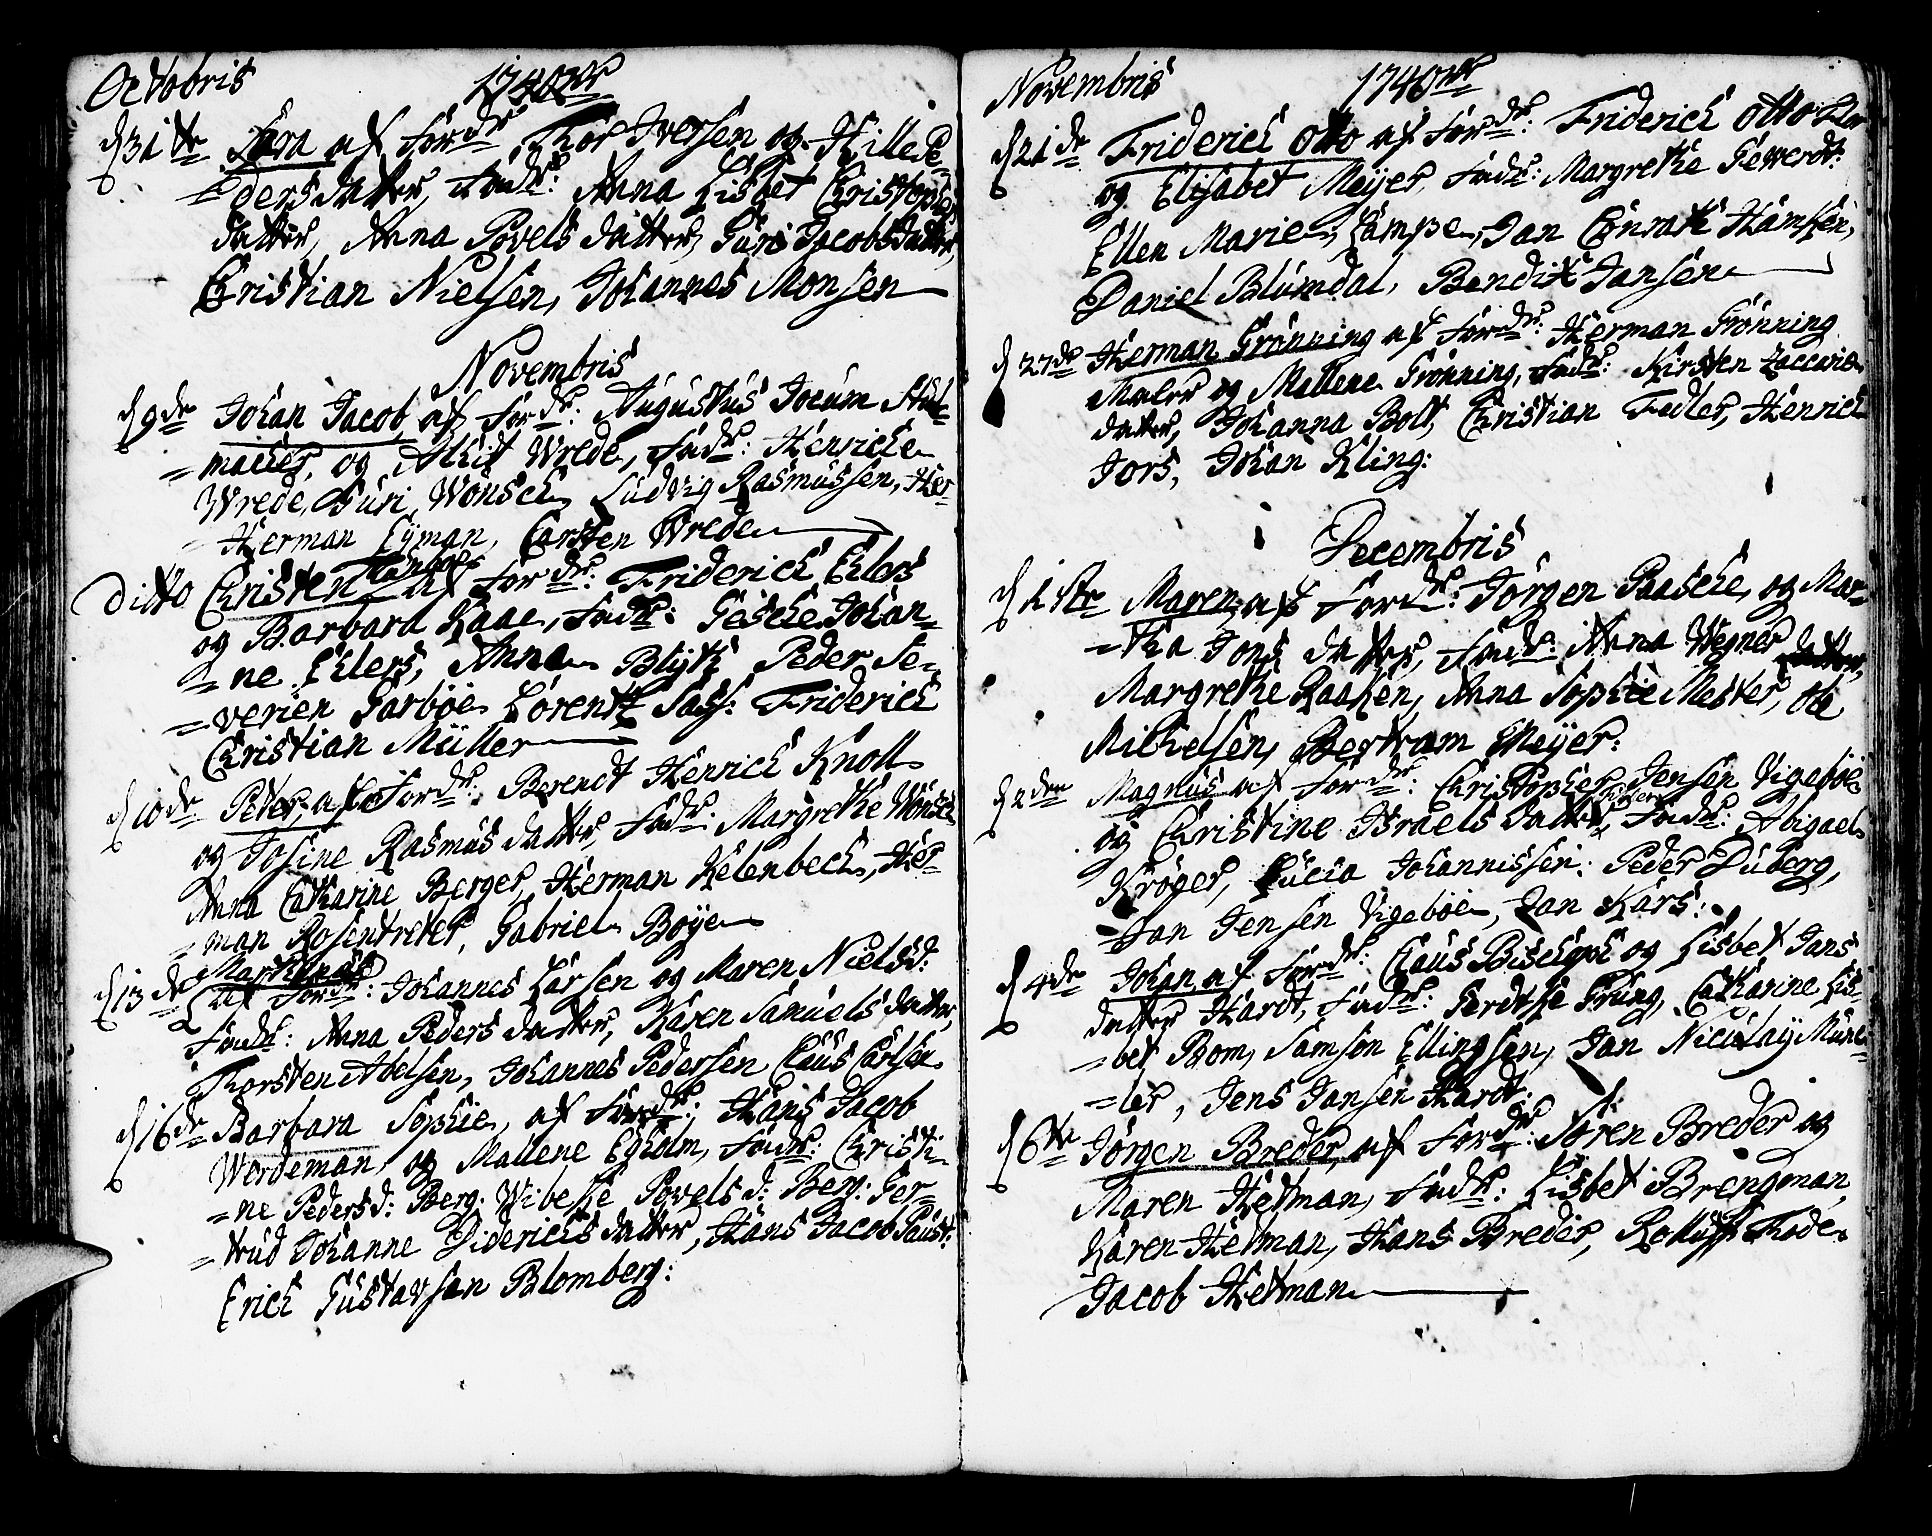 Octobris 1740
d 31te Sara af For dr: Thor Iversen og Hille Pe-
-ders datter, Fadr: Anna Lisbet Christophers
datter, Anna Povels datter, Guri Jacobs datter,
Christian Nielsen, Johannes Monsen
Novembris
d 9de Johan Jacob, af For dr: Augustus Jocum Stül-
=macher, og Wrede, Fadr: Henriche
Wrede, Guri Wonsch, Ludvig Rasmussen, Her-
-Herman Eÿman, Carsten Wrede
Ditto Christen Garboe af For dr: Friderich Ehlers
og Barbara Kaae, Fadr: Gesche Johan-
=ne Ehlers, Anna Blÿth Peder Se-
=verien Garböe Lorentz Sass: Friderich
Christian Müller
d 10de Peter, af For dr: Berendt Henrich Knoll
og Josine Rasmus datter, Fadr: Margrethe Wonsch
Anna Catharine Berger, Herman Kelenbech, Her-
=man Rosentreter, Gabriel Boÿe
d 13de Marthinus
af For dr: Johannes Larsen og Maren Niels d:
Fadr: Anna Peders datter, Karen Samuels datter,
Thorsten Abelsen, Johannes Pedersen Claus Carlsen
d 16de Barbara Sophie, af For dr: Hans Jacob
Werdeman, og Mallene Egholm, Fadr: Christi-
=ne Peders d: Berg: Wibeche Povels d: Berg: Ger-
=trud Johanne Diderichs datter, Hans Jacob Paust:
Erich Gustavsen Blomberg:
Novembris 1740
d 21de Friderich Otto af For dr: Friderich Otto
og Elisabet Meÿer, Fadr: Margrethe Gewerdt:
Ellen Marie Lampe, Jan Conrath Hamken,
Daniel Blumdal, Bendix Jansen
d 27de Herman Grönning af For dr: Herman Grönning
Maler og Mallene Grönning, Fadr: Kirsten Zaccarie
datter, Johanna Bolt, Christian Fedler, Henrich
Jors, Johan Kling:
Decembris
d 1ste Maren, af For dr: Jörgen Paasche, og Mar-
-tha Jons datter, Fadr: Anna Wegner
Margrethe Raaken, Anna Sophie Mester, Ole
Michelsen, Bertram Meÿer:
d 2den Magnus af For dr: Christopher Jensen Vigeböe
og Christine Israels datter, Fadr: Abigael
Kröger, Lucia Johannissen: Peder Duberg,
-Jan Jensen Vigeböe, Jan Kars:
d 4de Johan af For dr: Claus Bischoph og Lisbet Jans
datter Hardt, Fadr: Gerdtke Grüng, Catharine Lis-
=bet Bom, Samson Ellingsen, Jan Niculaÿ Münc-
=ler, Jens Jansen Hardt:
d 6te Jörgen Breder, af For dr: Sören Breder og
Maren Hetman, Fadr: Lisbet Brengman,
Karen Hetman, Hans Breder, Rolluff Thode
Jacob Hetman